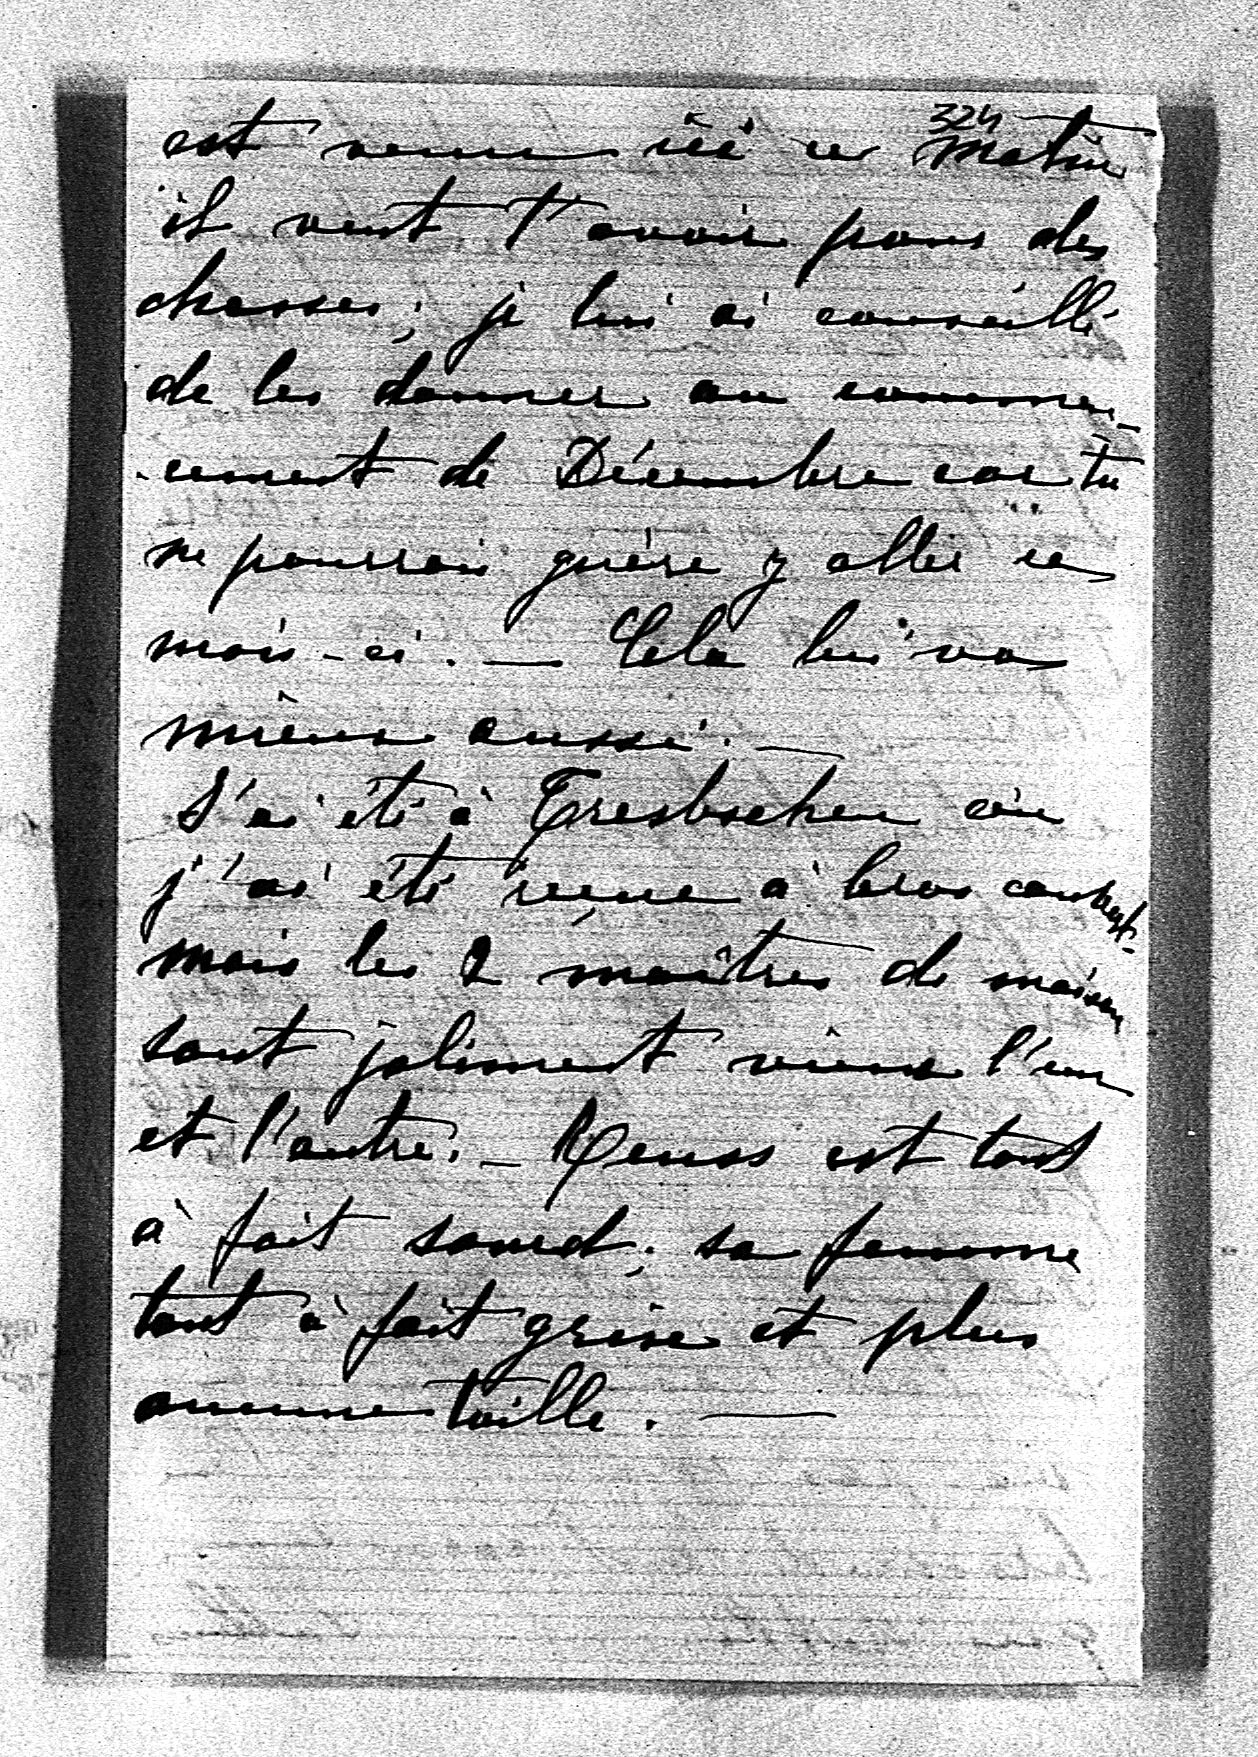 324
est venu ici ce matin
il veut t'avoir pour des
chasses; je lui ai conseillé
de les donner au commen-
cement de Décembre car tu
ne pourrais guère y aller ce
mois-ci. — Cela lui va
mieux aussi. —
J'ai été à Trebschen où
j'ai été reçue à bras ouverts
mais les 2 maîtres de maison
sont joliment vieux l'un
et l'autre. — Reuss est tout
à fait sourd; sa femme
tout à fait grise et plus
aucune taille. —